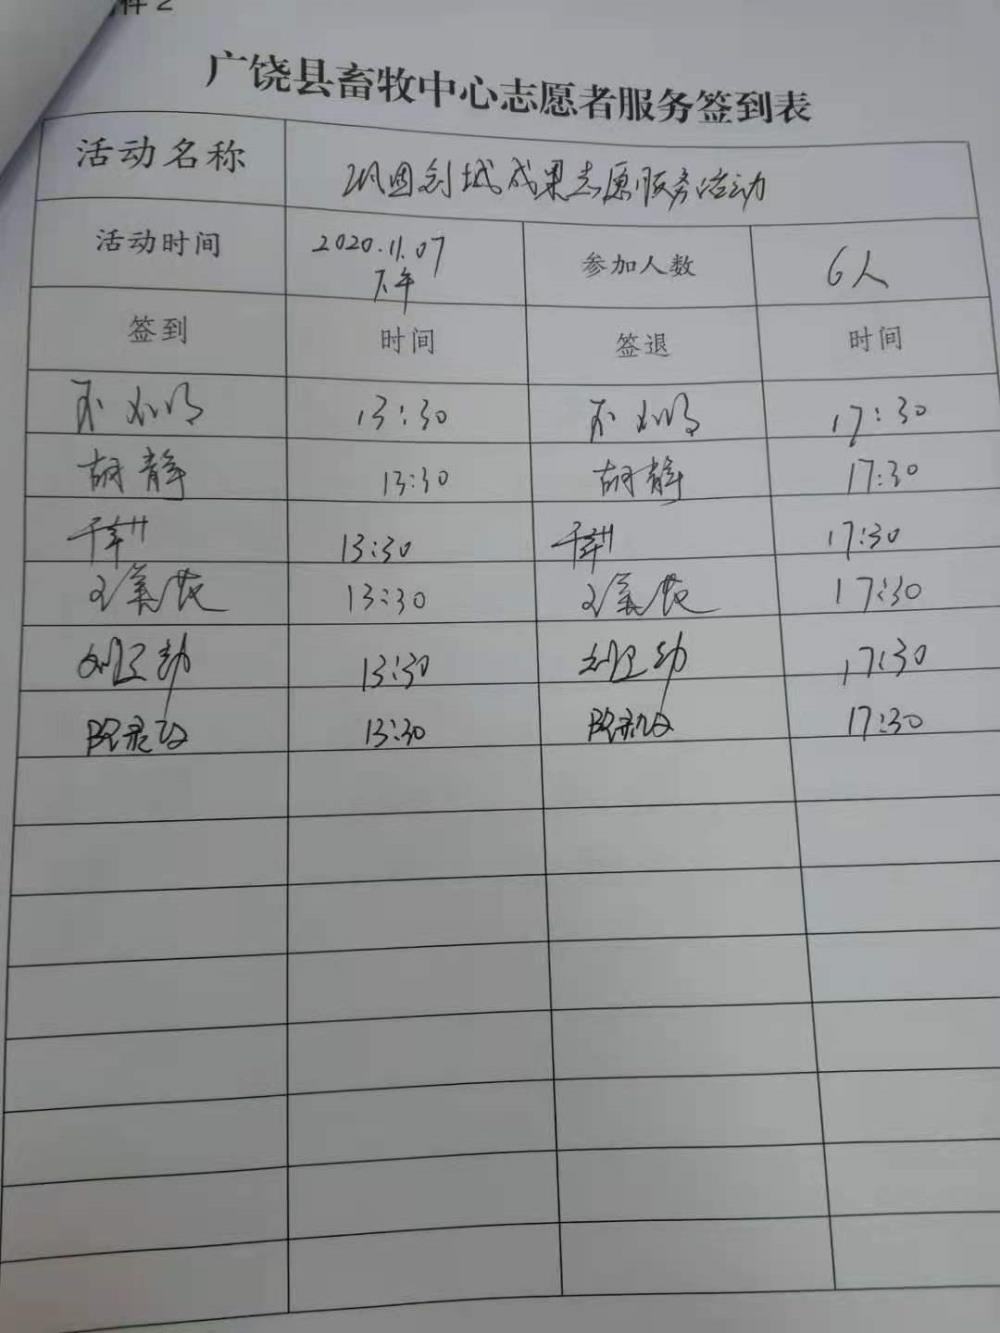 件2
广饶县畜牧中心志愿者服务签到表
活动名称 巩固创城成果志愿服务活动
活动时间 2020.11.07 下午 参加人数 6人
签到 时间 签退 时间
13:30 17:30
胡静 13:30 胡静 17:30
13:30 17:30
13:30 17:30
13:30 17:30
13:30 17:30